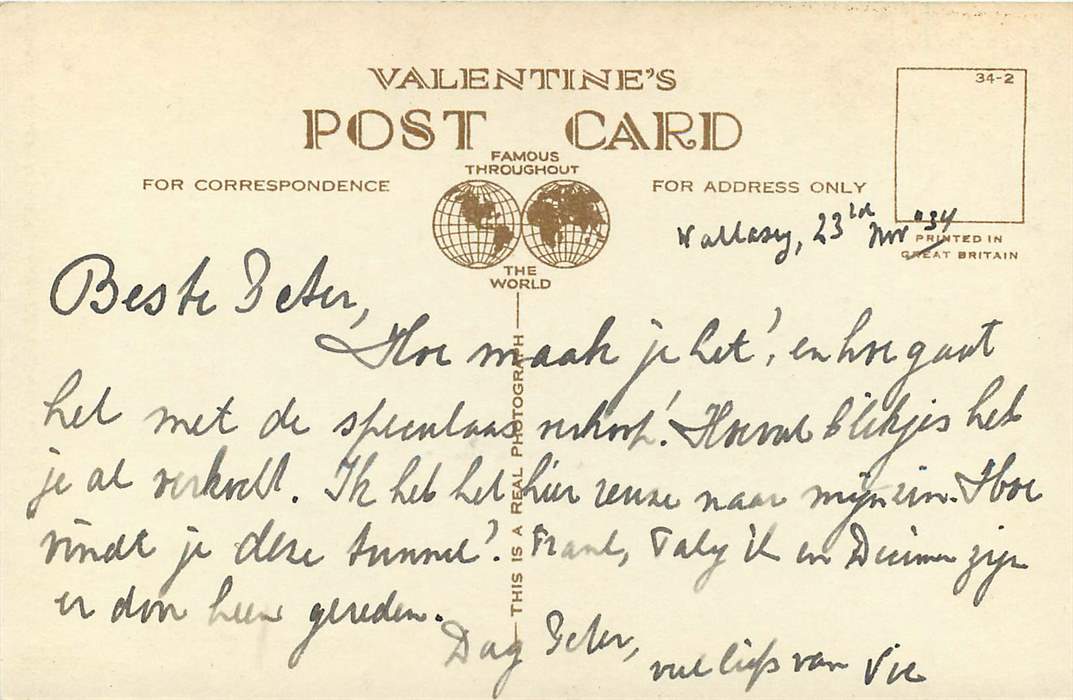 VALENTINE'S
POST CARD
FAMOUS
THROUGHOUT
THE
WORLD
FOR CORRESPONDENCE
FOR ADDRESS ONLY
34-2
PRINTED IN
GREAT BRITAIN
THIS IS A REAL PHOTOGRAPH
Wallasey, 23rd Nov "34
Beste Peter,
Hoe maak je het', en hoe gaat
het met de speculaas verkoop'. Hoeveel blikjes heb
je al verkocht. Ik heb het hier reuze naar mijn zin. Hoe
vindt je deze tunnel'. Frans, ik en zijn
er door heen gereden.
Dag Peter,
veel liefs van